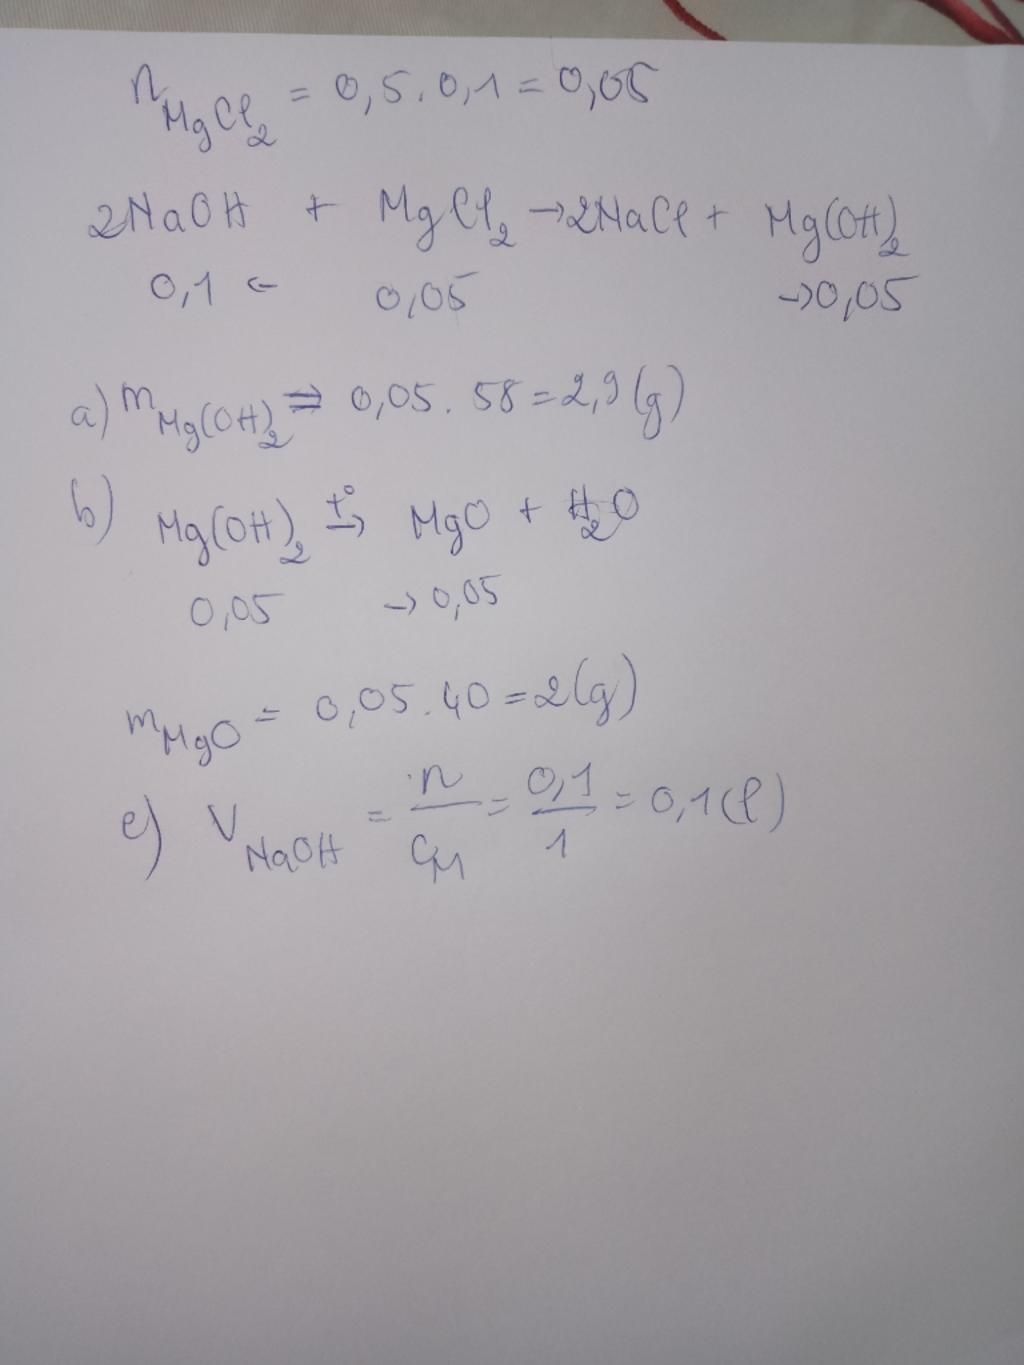 n MgCl2 = 0,5.0,1 = 0,05
2NaOH + MgCl2 → 2NaCl + Mg(OH)2
0,1 ← 0,05 → 0,05
a) m Mg(OH)2 = 0,05.58 = 2,9(g)
b) Mg(OH)2 t° → MgO + H2O
0,05 → 0,05
m MgO = 0,05.40 = 2(g)
c) V NaOH = n/CM = 0,1/1 = 0,1(l)